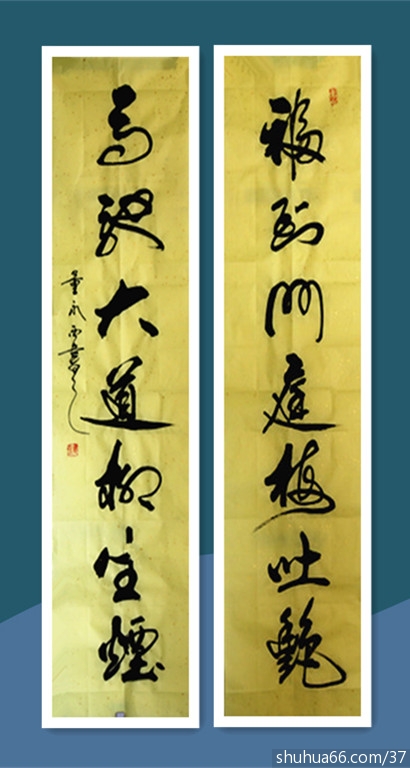 福到門庭梅吐艷
馬馳大道柳生煙
shuhua66.com/37